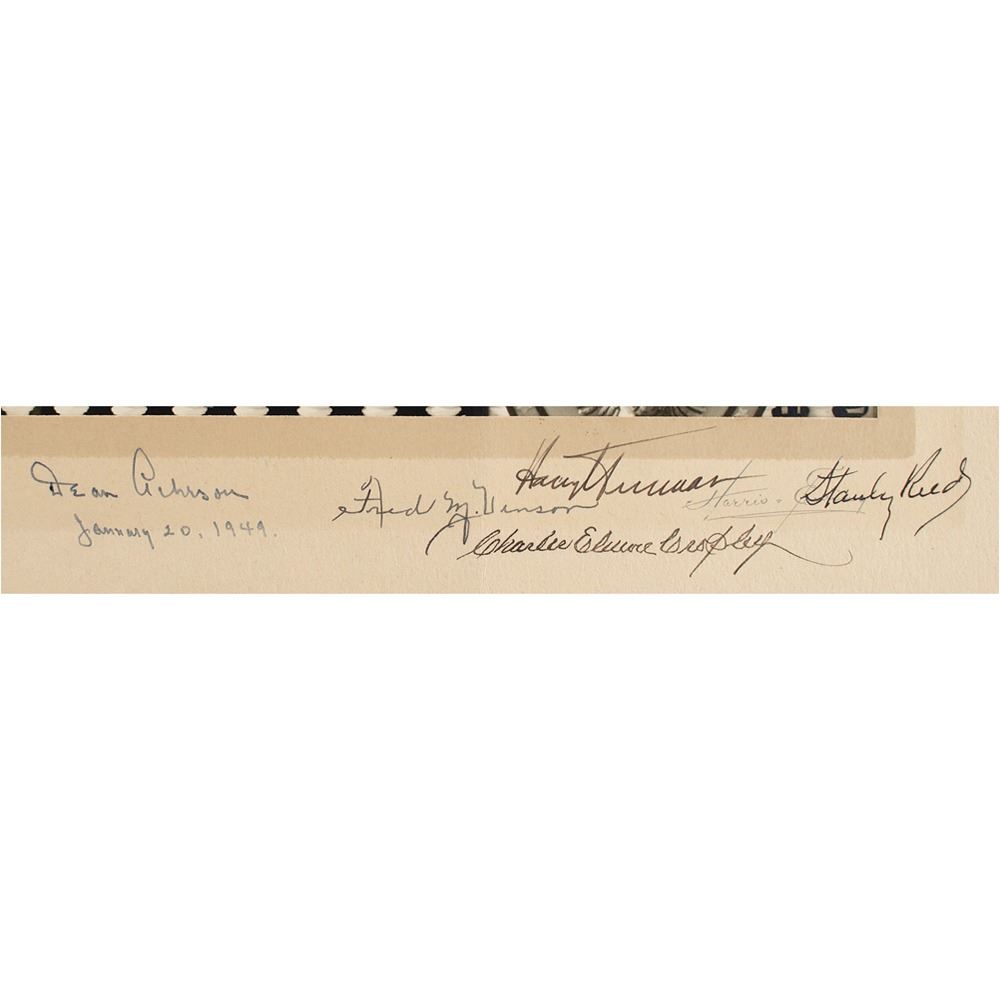 Dean Acheson
January 20, 1949.
Fred M. Vinson
Harry Truman
Harris &
Stanley Reed
Charles Elmore Cropley